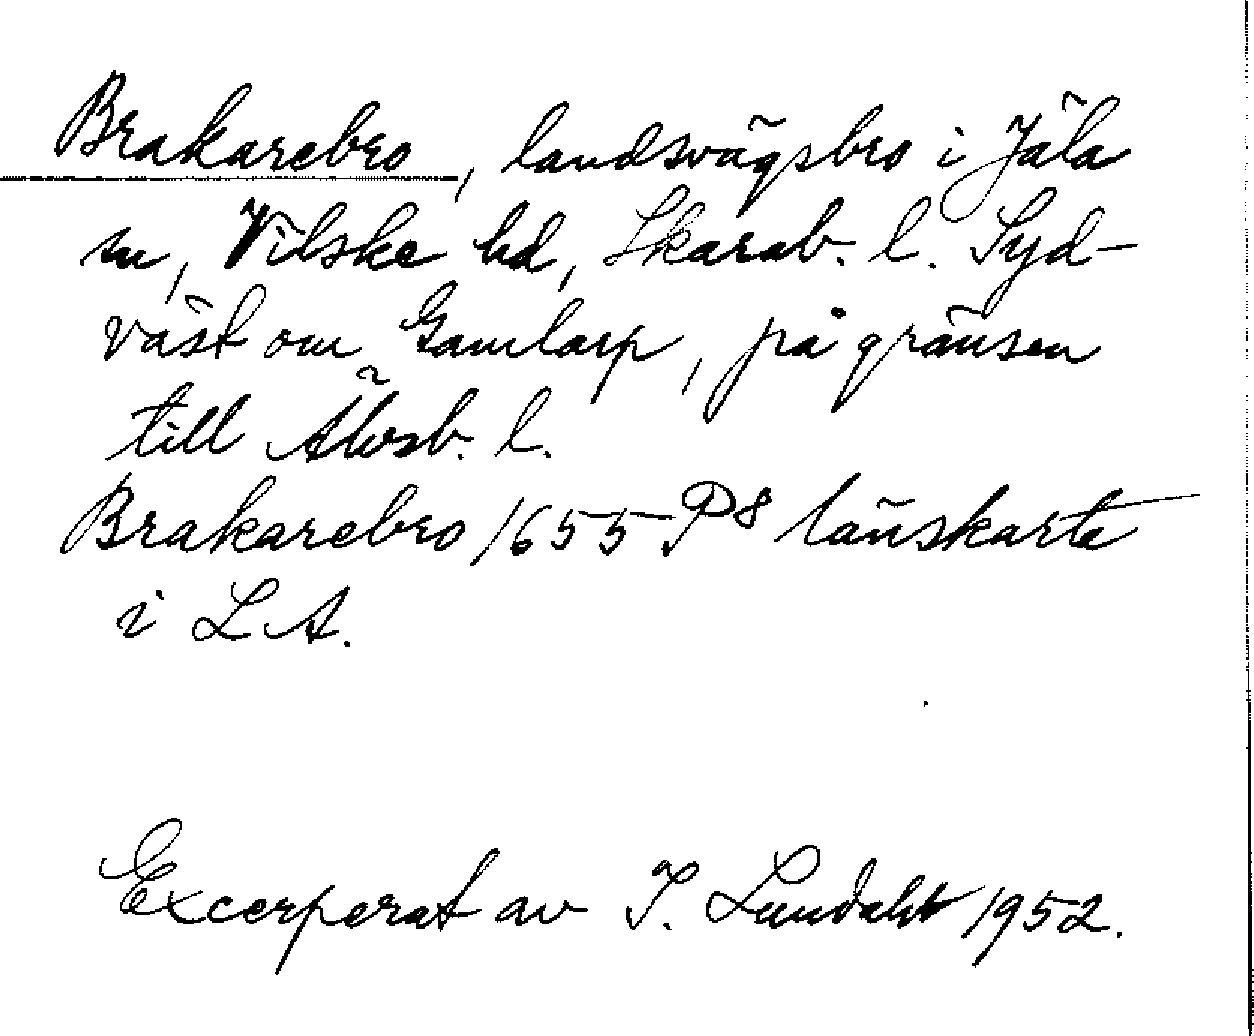 Brakarebro, landsvägsbro i Jäla
sn, Vilske hd, Skarab. l. Syd-
väst om Gamlarp, på gränsen
till Älvsb. l.
Brakarebro 1655 P8 länskarta
i LA.
Excerperat av I. Lundahl 1952.